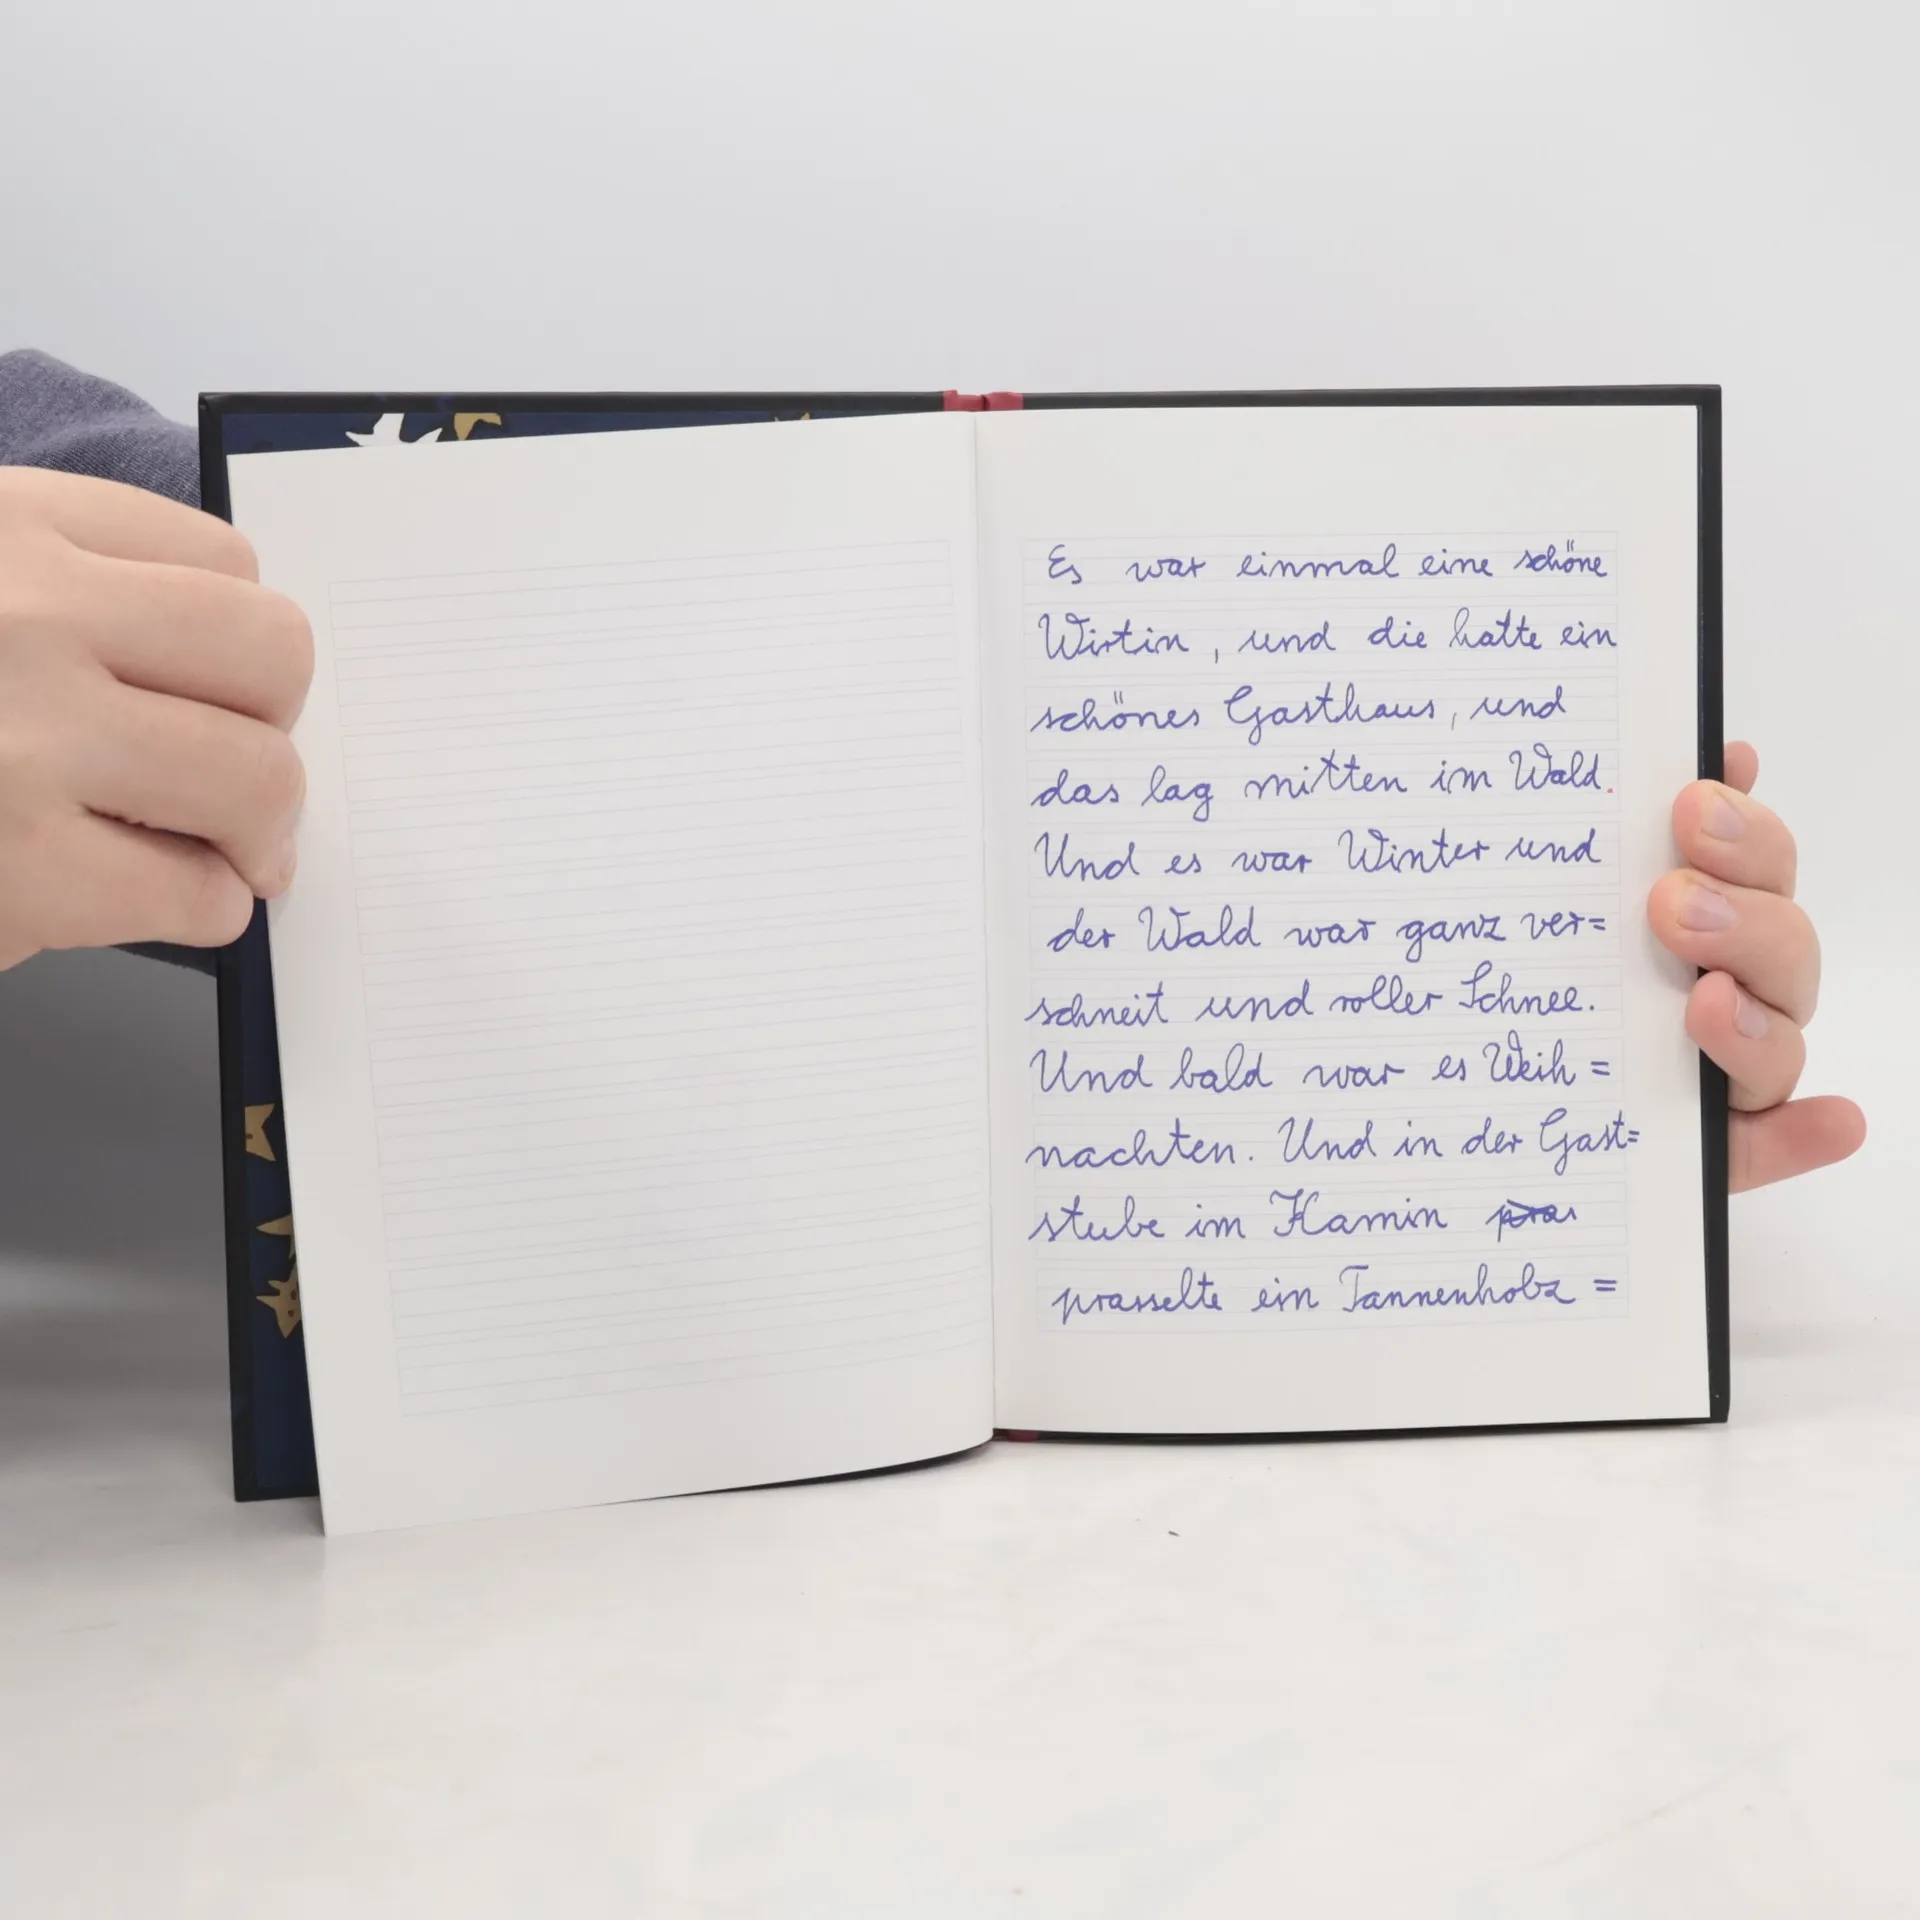 Es war einmal eine schöne
Wirtin, und die hatte ein
schönes Gasthaus, und
das lag mitten im Wald.
Und es war Winter und
der Wald war ganz ver=
schneit und voller Schnee.
Und bald war es Weih=
nachten. Und in der Gast=
stube im Kamin pras
prasselte ein Tannenholz=